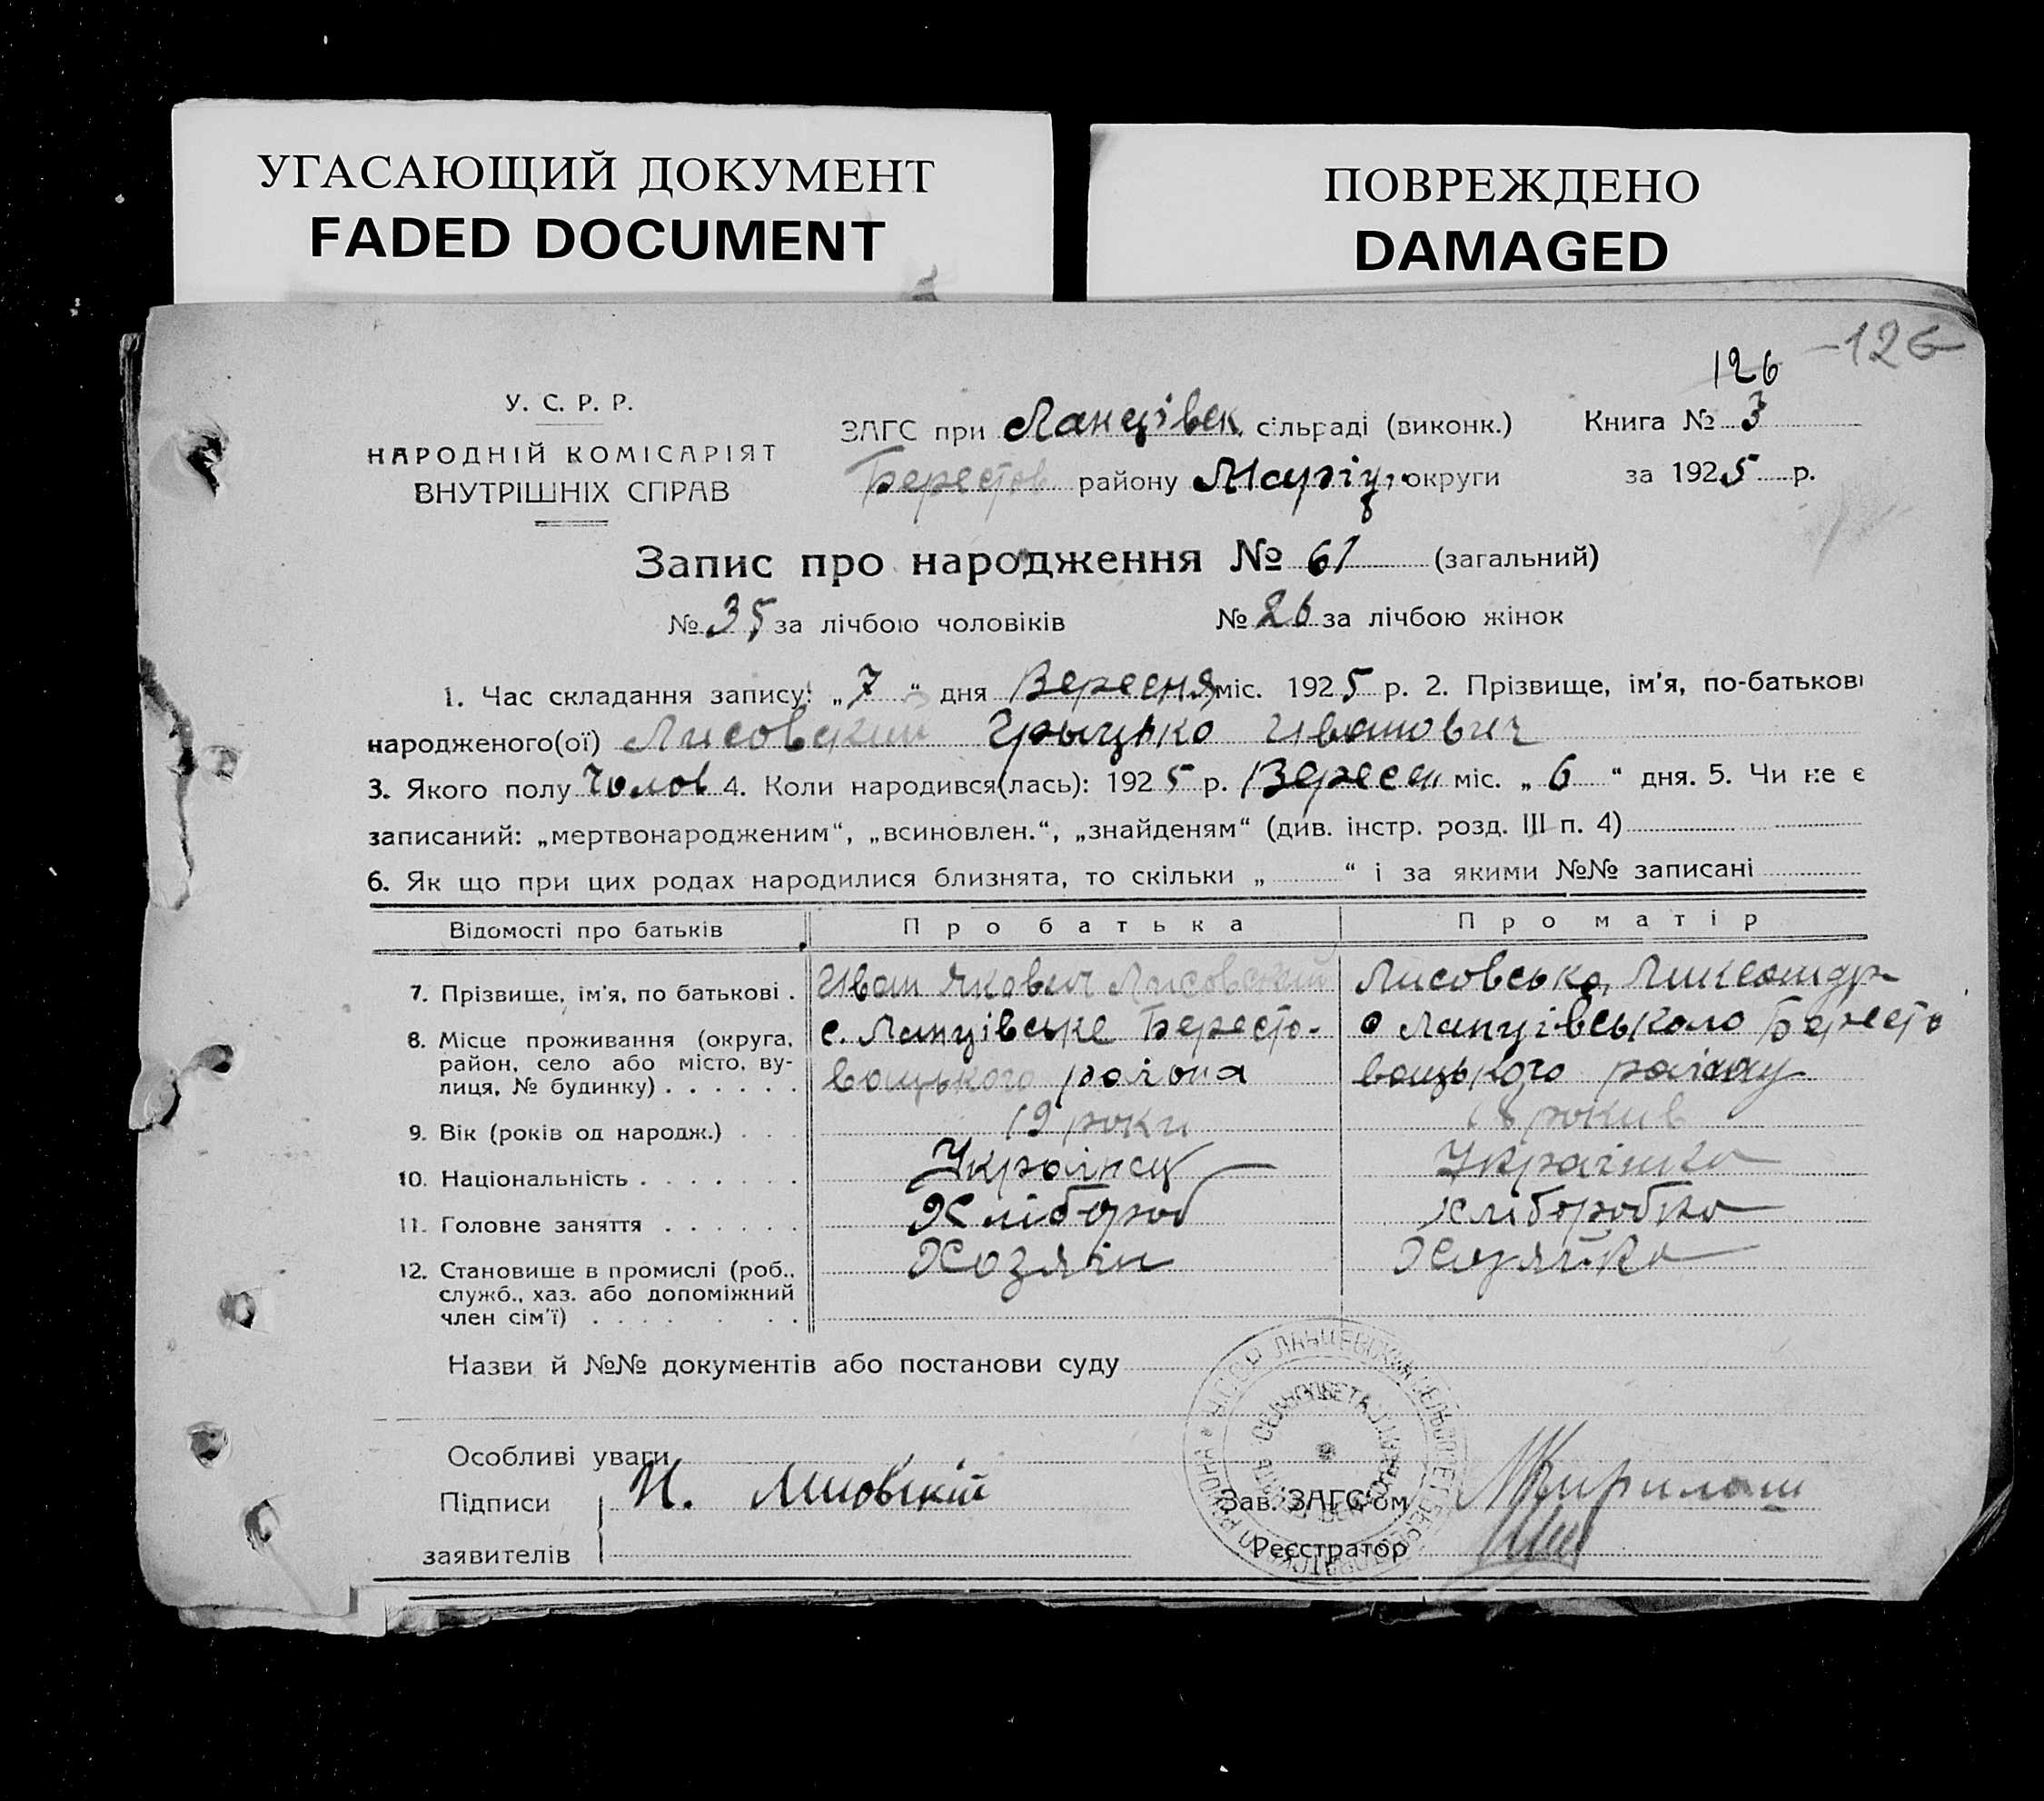 УГАСАЮЩИЙ ДОКУМЕНТ
FADED DOCUMENT
ПОВРЕЖДЕНО
DAMAGED
-126
126
У. С. Р. Р.
НАРОДНІЙ КОМІСАРІЯТ
ВНУТРІШНІХ СПРАВ
ЗАГС при Ланцівск. сільраді (виконк.) Книга № 3
Берестов району Маріу. округи за 1925 р.
Запис про народження № 61 (загальний)
№ 35 за лічбою чоловіків № 26 за лічбою жінок
1. Час складання запису: „7“ дня Вересня міс. 1925 р. 2. Прізвище, ім'я, по-батькові
народженого(ої) Лисовский Грыцько Иванович
3. Якого полу Чолов 4. Коли народився(лась): 1925 р. Вересн міс. „6“ дня. 5. Чи не є
записаний: „мертвонародженим“, „всиновлен.“, „знайденям“ (див. інстр. розд. III п. 4)
6. Як що при цих родах народилися близнята, то скільки „ “ і за якими №№ записані
Відомості про батьків Про батька Про матір
7. Прізвище, ім'я, по батькові . Иван Якович Лисовский Лисовська
8. Місце проживання (округа, район, село або місто, вулиця, № будинку) . . . . . . с. Ланцівське Бересто-
вацького района
Ланцівського Бересто
вацького району
9. Вік (років од народж.) . . . 19 роки 18 рокив
10. Національність . . . . . . . Украінец Украінка
11. Головне заняття . . . . . . Хлібороб хліборобка
12. Становище в промислі (роб., служб., хаз. або допоміжний член сім'ї) . . . . . . . Хозяін Хозяйка
Назви й №№ документів або постанови суду
Особливі уваги
Підписи И. Лисовский Зав. ЗАГС'ом
заявителів Реєстратор